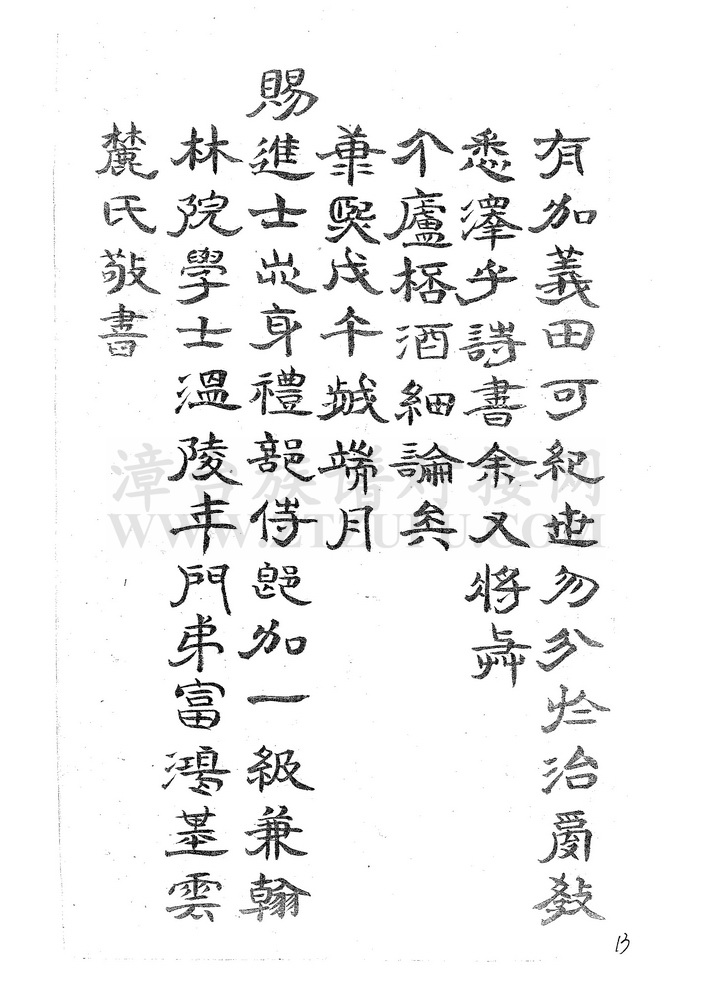 有加義田可紀世勿分於治教
悉澤乎詩書余又將與
介廬桮酒細論矣
康熙戊午歲端月
賜進士出身禮部侍郎加一級兼翰
林院學士溫陵年門弟富鴻基雲
麓氏敬書
漳台族谱对接网
WWW.ZTZUPU.COM
13